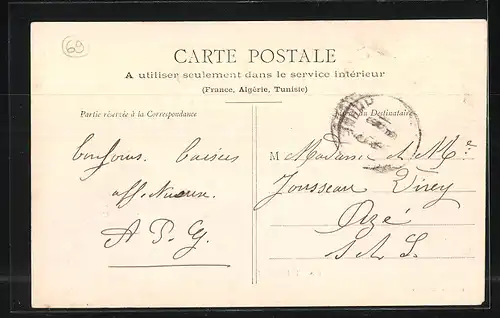 69
CARTE POSTALE
A utiliser seulement dans le service intérieur
(France, Algérie, Tunisie)
Partie réservée à la Correspondance
du Destinataire
Bonjours. Baisers
M Madame & Melle
affectueux.
Jousseau Virey
A P. G.
Azé
S & L.